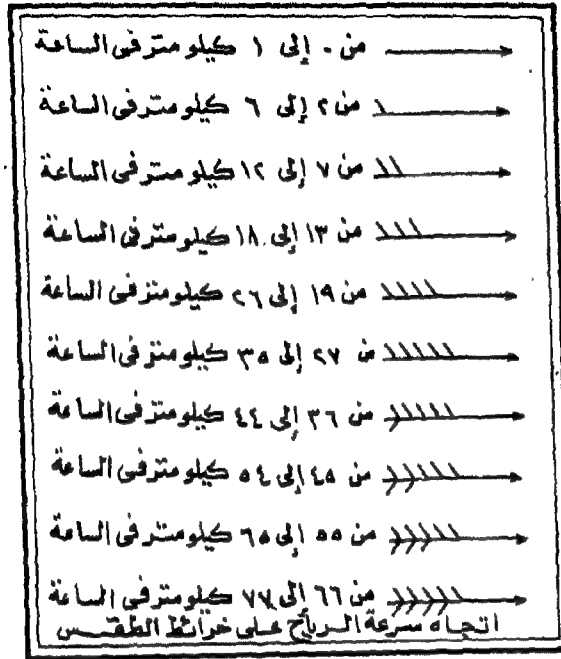 من ٠ إلى ١ كيلو متر فى الساعة
من ٢ إلى ٦ كيلو متر فى الساعة
من ٧ إلى ١٢ كيلو متر فى الساعة
من ١٣ إلى ١٨ كيلو متر فى الساعة
من ١٩ إلى ٢٦ كيلو متر فى الساعة
من ٢٧ إلى ٣٥ كيلو متر فى الساعة
من ٣٦ إلى ٤٤ كيلو متر فى الساعة
من ٤٥ إلى ٥٤ كيلو متر فى الساعة
من ٥٥ إلى ٦٥ كيلو متر فى الساعة
من ٦٦ إلى ٧٧ كيلو متر فى الساعة
اتجاه سرعة الرياح على خرائط الطقس